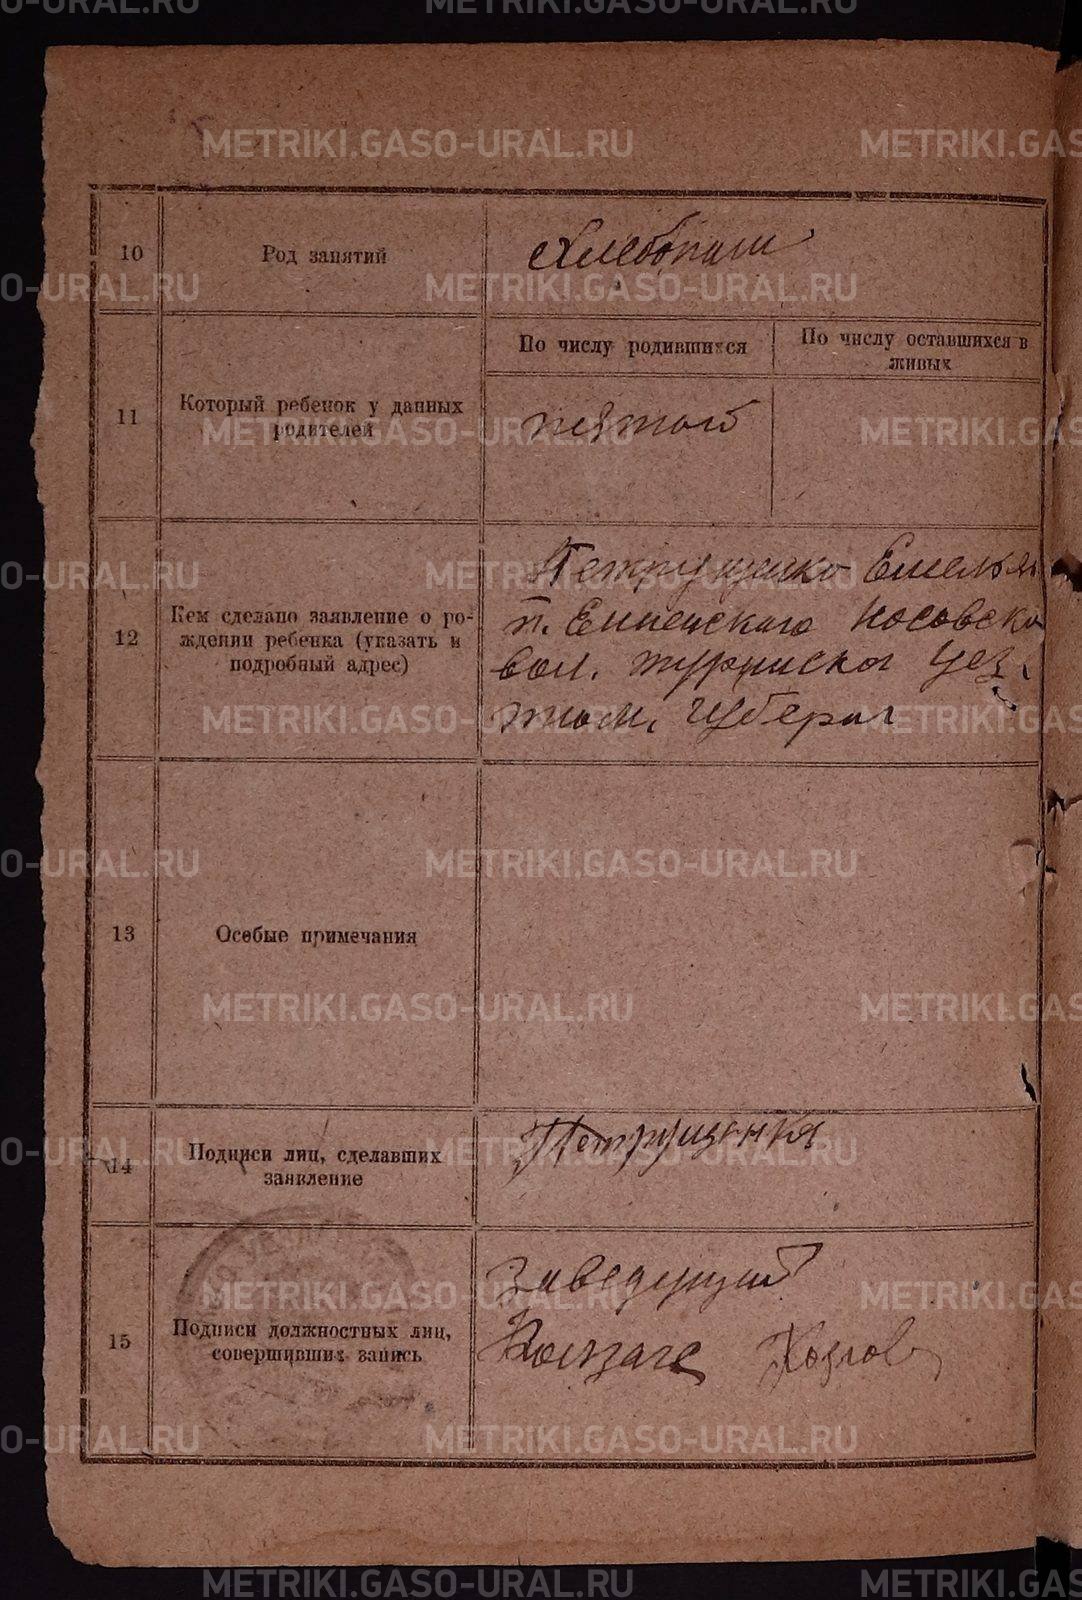 10
Род занятий
Хлебопаш
11
Который ребенок у данных
родителей
По числу родившихся
По числу оставшихся в
живых
пятой
12
Кем сделано заявление о ро-
ждении ребенка (указать и
подробный адрес)
Петрущенко Емельян
п. Носовско
вол. Уез.
губерн
13
Особые примечания
14
Подписи лиц, сделавших
заявление
Петрущенкя
15
Подписи должностных лиц,
совершивших запись
Заведующий
Волзагс Козлов
METRIKI.GASO-URAL.RU